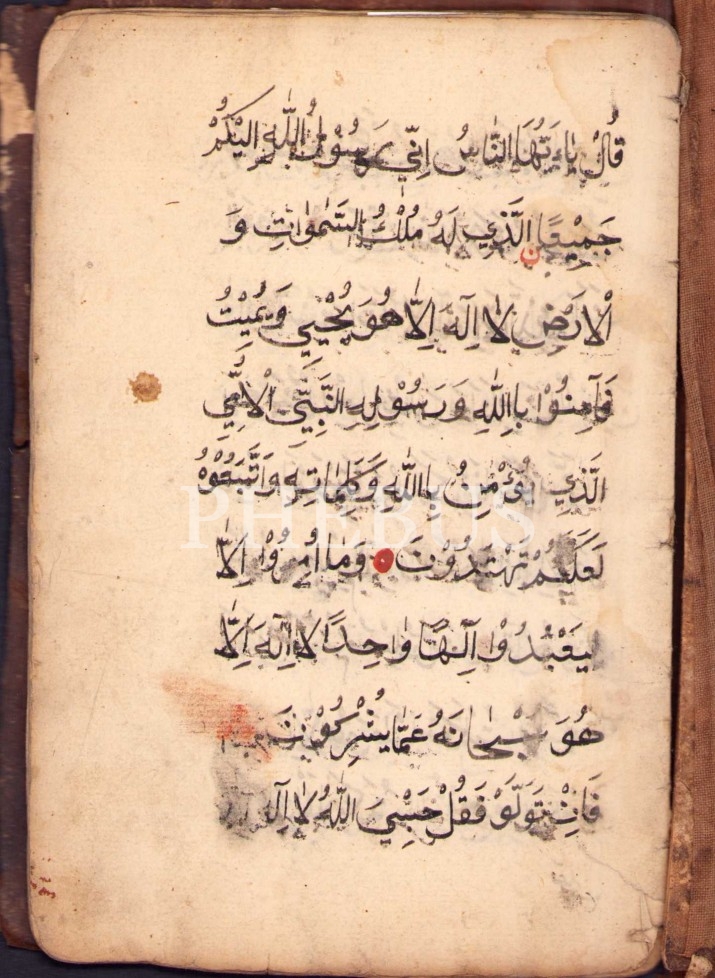 قُلْ يَاءَيُّهَا النَّاسُ اِنِّي رَسُوْلُ اللّٰهِ اِلَيْكُمْ
جَمِيْعًا ن الَّذِي لَهُ مُلْكُ السَّمٰوَاتِ وَ
الْاَرْضِ لَا اِلٰهَ اِلَّا هُوَ يُحْيِي وَيُمِيْتُ
فَآمِنُوْا بِاللّٰهِ وَرَسُوْلِهِ النَّبِيِّ الْاُمِّيِّ
الَّذِي يُؤْمِنُ بِاللّٰهِ وَكَلِمَاتِهِ وَاتَّبِعُوْهُ
لَعَلَّكُمْ تَهْتَدُوْنَ وَمَا اُمِرُوْا اِلَّا
لِيَعْبُدُوْا اِلٰهًا وَاحِدًا لَا اِلٰهَ اِلَّا
هُوَ سُبْحَانَهُ عَمَّا يُشْرِكُوْنَ
فَاِنْ تَوَلَّوْ فَقُلْ حَسْبِيَ اللّٰهُ لَا اِلٰهَ
PHEBUS